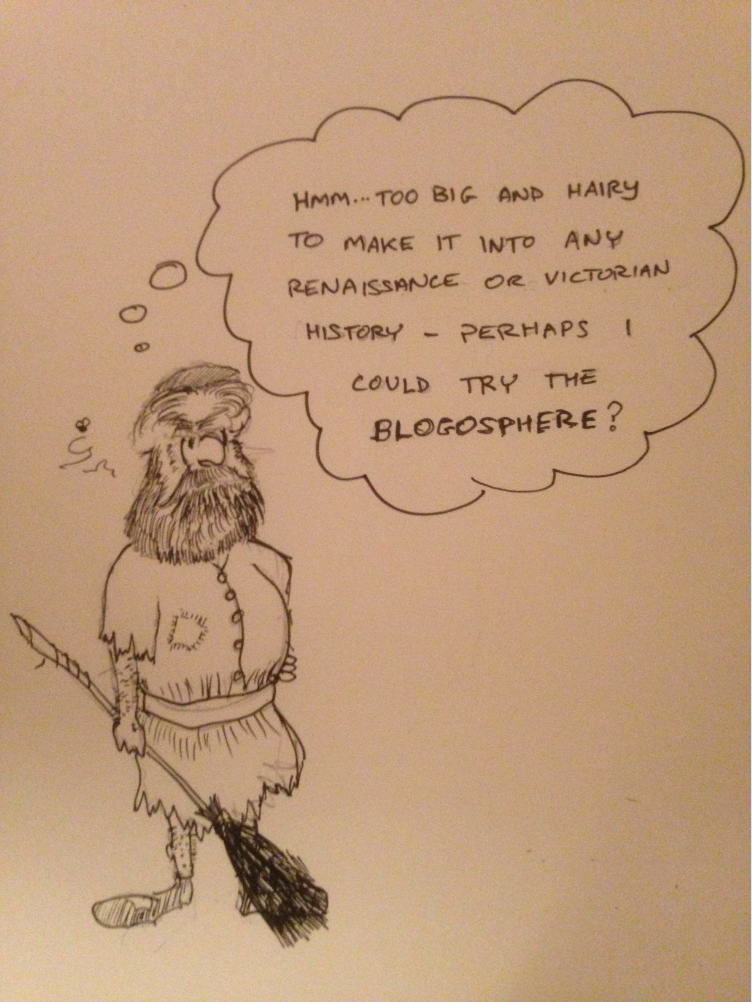 HMM... TOO BIG AND HAIRY
TO MAKE IT INTO ANY
RENAISSANCE OR VICTORIAN
HISTORY - PERHAPS I
COULD TRY THE
BLOGOSPHERE?